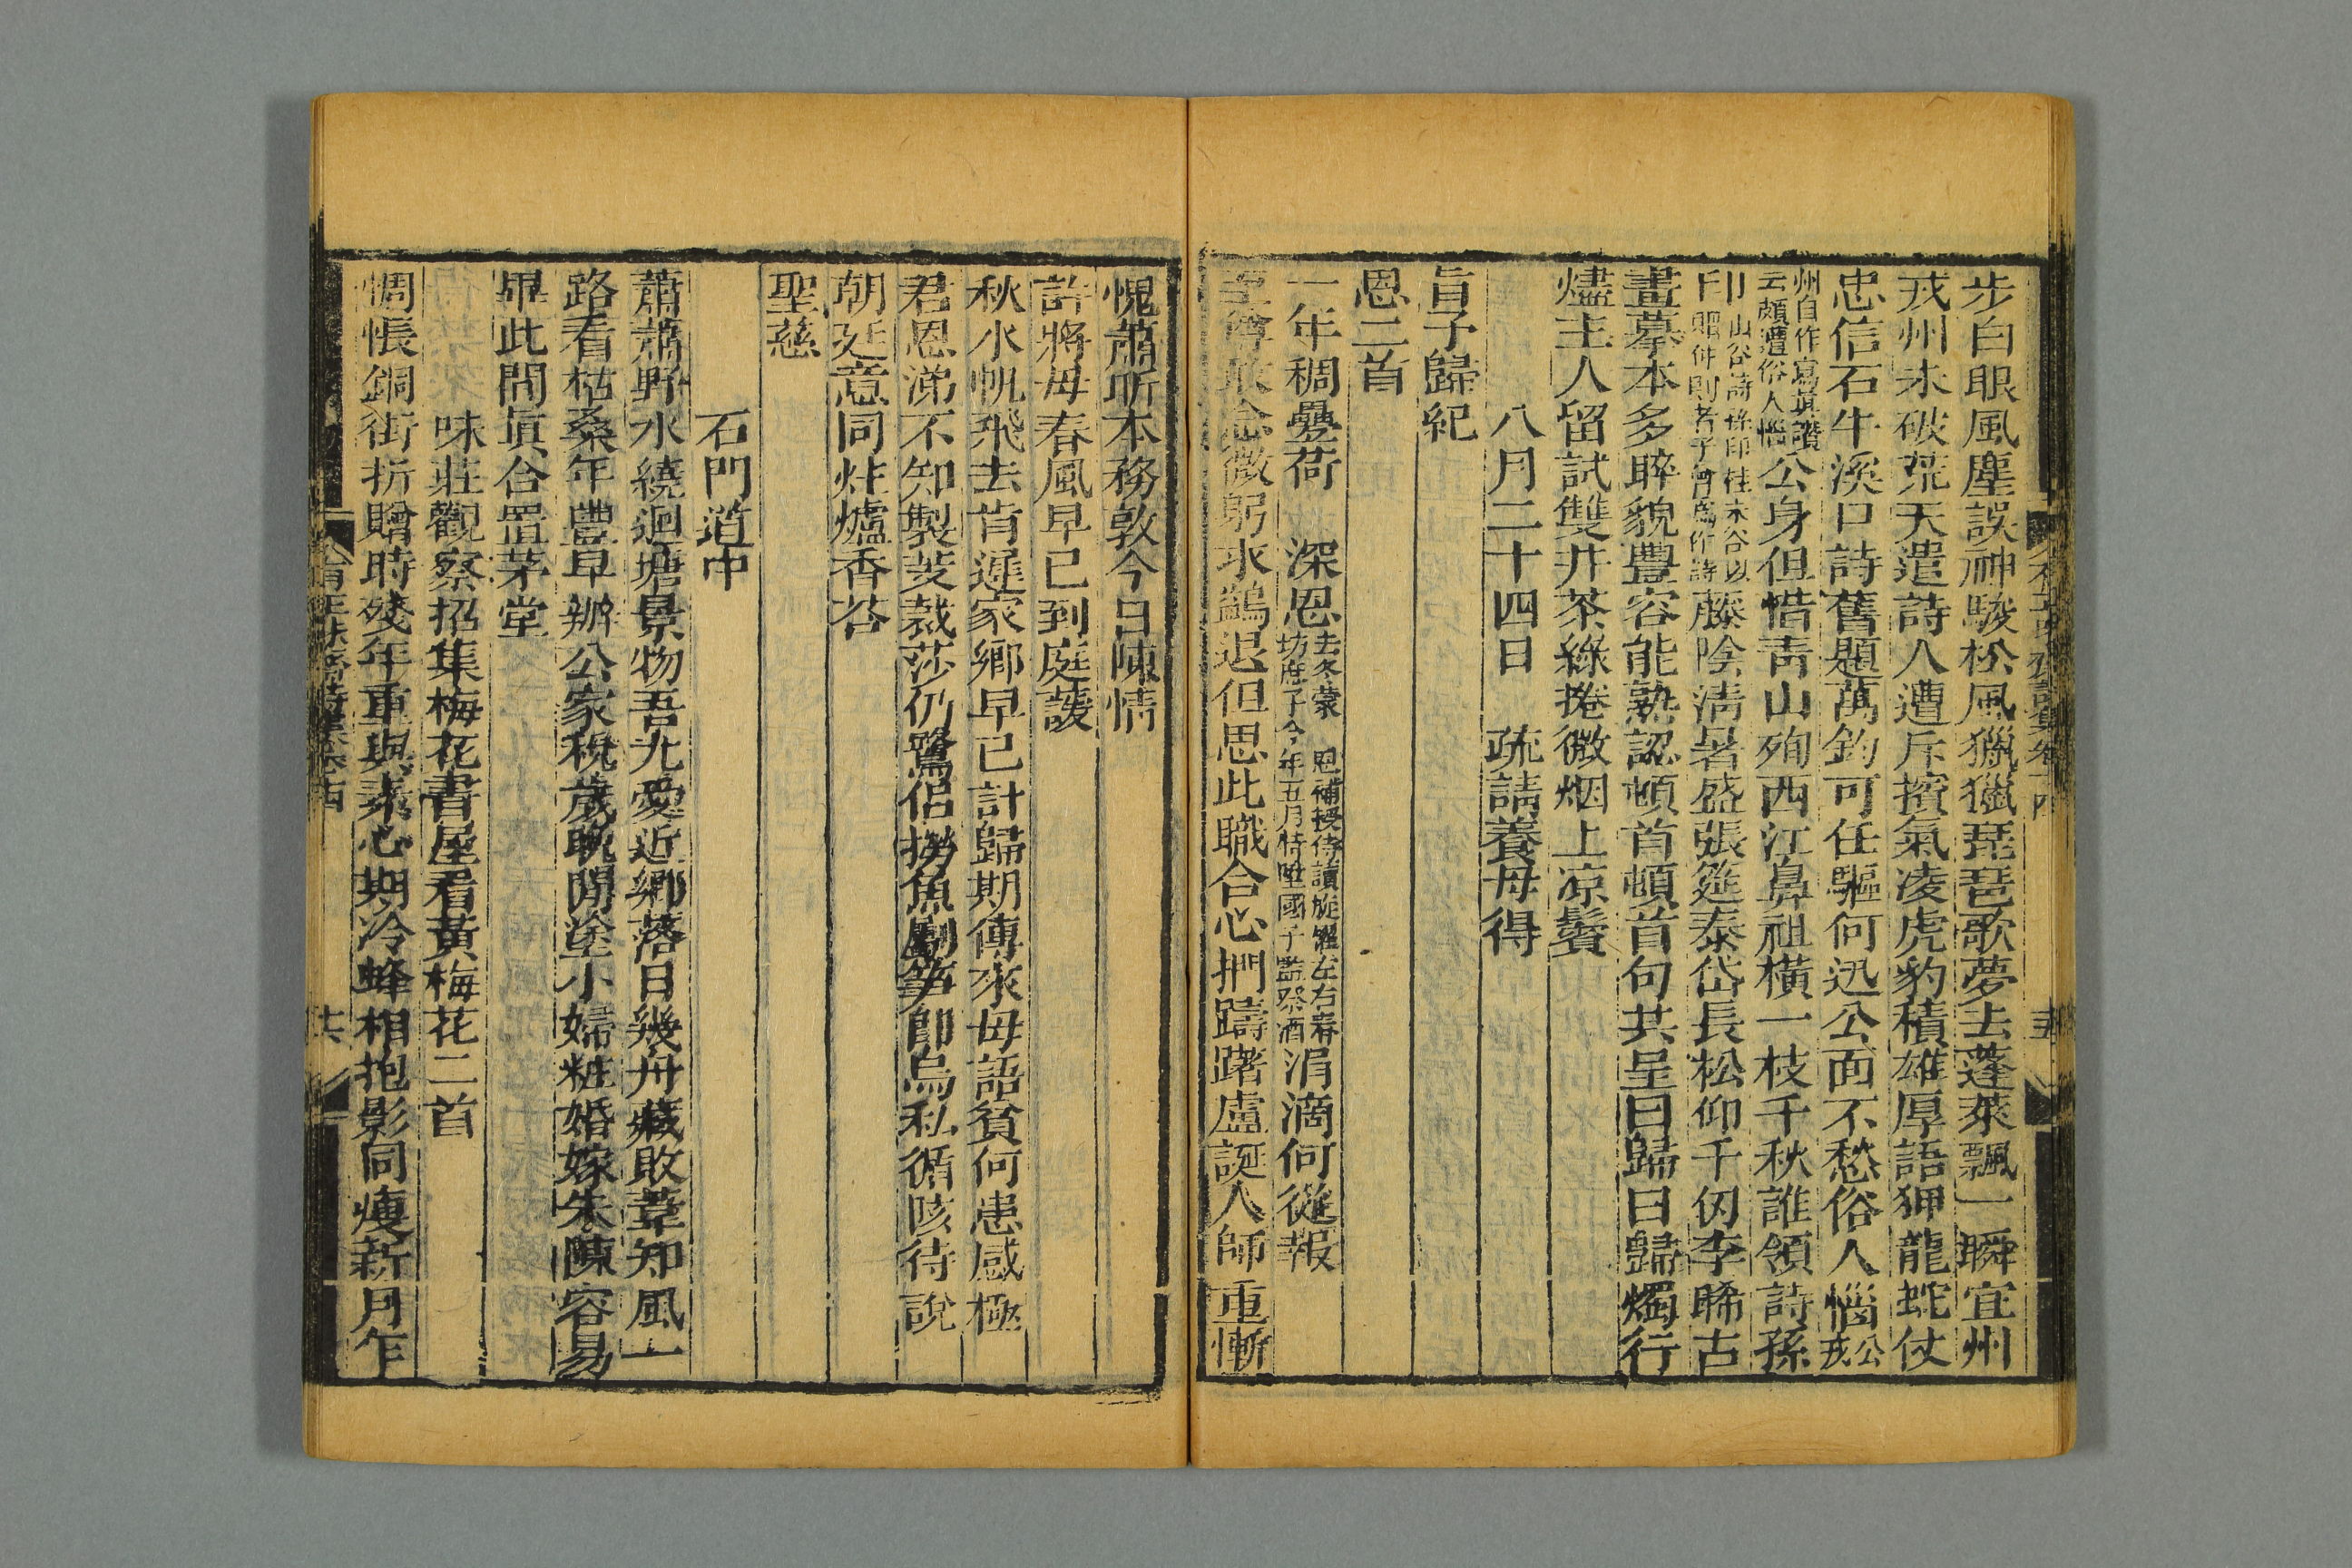 步自眼風塵誤神駿松風獵獵琵琶歌夢去蓬萊飄一瞬宜州
戎州未破荒天遣詩人遭斥擯氣凌虎豹積雄厚語狎龍蛇仗
忠信石牛溪口詩舊題萬鈞可任驅何迅公面不愁俗人惱公戎
州自作寫眞讃云頗遭俗人惱公身但惜靑山殉西江鼻祖橫一枝千秋誰領詩孫
印山谷詩孫印桂未谷以印贈仲則者予曾爲作詩藤陰淸暑盛張筵泰岱長松仰千仞李晞古
畫摹本多睟貌豐容能熟認頓首頓首句共呈曰歸曰歸燭行
燼主人留試雙井茶綠捲微烟上凉鬢
八月二十四日 疏請養母得
旨予歸紀
恩二首
一年稠疊荷 深恩去冬蒙 恩補授侍讀旋擢左右春坊庶子今年五月特陞國子監祭酒涓滴何從報
至尊敢念微躬求鷁退但思此職合心捫躊躇盧誕人師重慚
愧蕭昕本務敦今日陳情
許將母春風早已到庭萲
秋水帆飛去肯遲家鄉早已計歸期傳來母語貧何患感極
君恩涕不知製芰裁莎仍鷺侣撈魚劚筍卽烏私循陔待說
朝廷意同炷爐香荅
聖慈
石門道中
蕭蕭野水繞迴塘景物吾尤愛近鄉落日幾舟藏敗葦知風一
路看枯桑年豊早辦公家稅歲晚閒塗小婦粧婚嫁朱陳容易
畢此間眞合置茅堂
味莊觀察招集梅花書屋看黃梅花二首
惆悵銅街折贈時殘年重與素心期冷蜂相抱影同瘦新月乍
有正味齋詩集卷十四